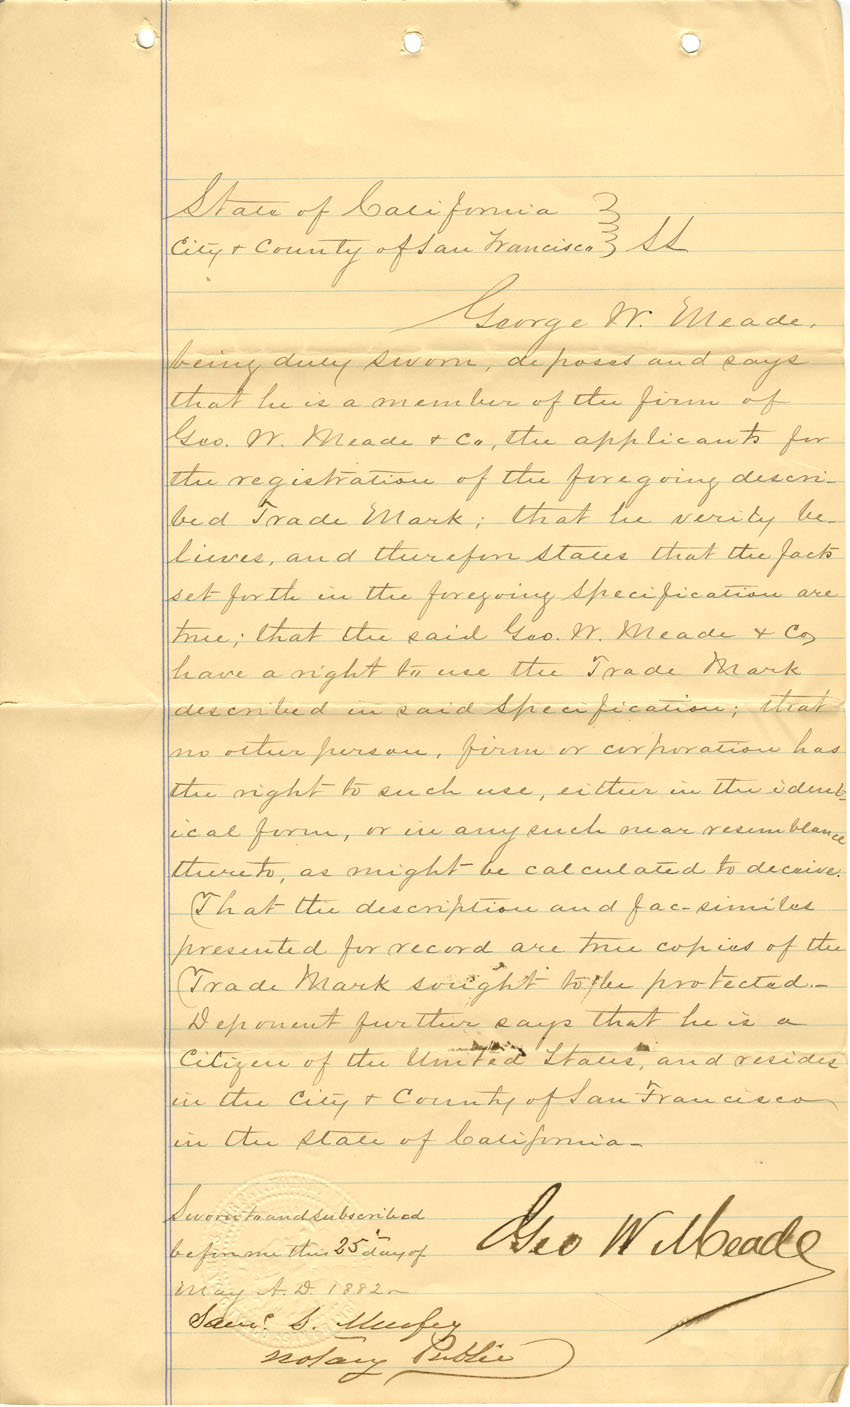 State of California
City & County of San Francisco } SS
George W. Meade,
being duly sworn, deposes and says
that he is a member of the firm of
Geo. W. Meade & Co, the applicants for
the registration of the foregoing descri-
bed Trade Mark; that he verily be-
lieves, and therefore states that the facts
set forth in the foregoing Specification are
true; that the said Geo. W. Meade & Co,
have a right to use the Trade Mark
described in said Specification; that
no other person, firm or corporation has
the right to such use, either in the ident-
ical form, or in any such near resemblance
thereto, as might be calculated to deceive.
That the description and fac-similes
presented for record are true copies of the
Trade Mark sought to be protected.-
Deponent further says that he is a
Citizen of the United States, and resides
in the City & County of San Francisco
in the State of California-
Sworn to and subscribed
before me this 25 day of
May A.D. 1882-
Geo W Meade
Saml. S.
Notary Public